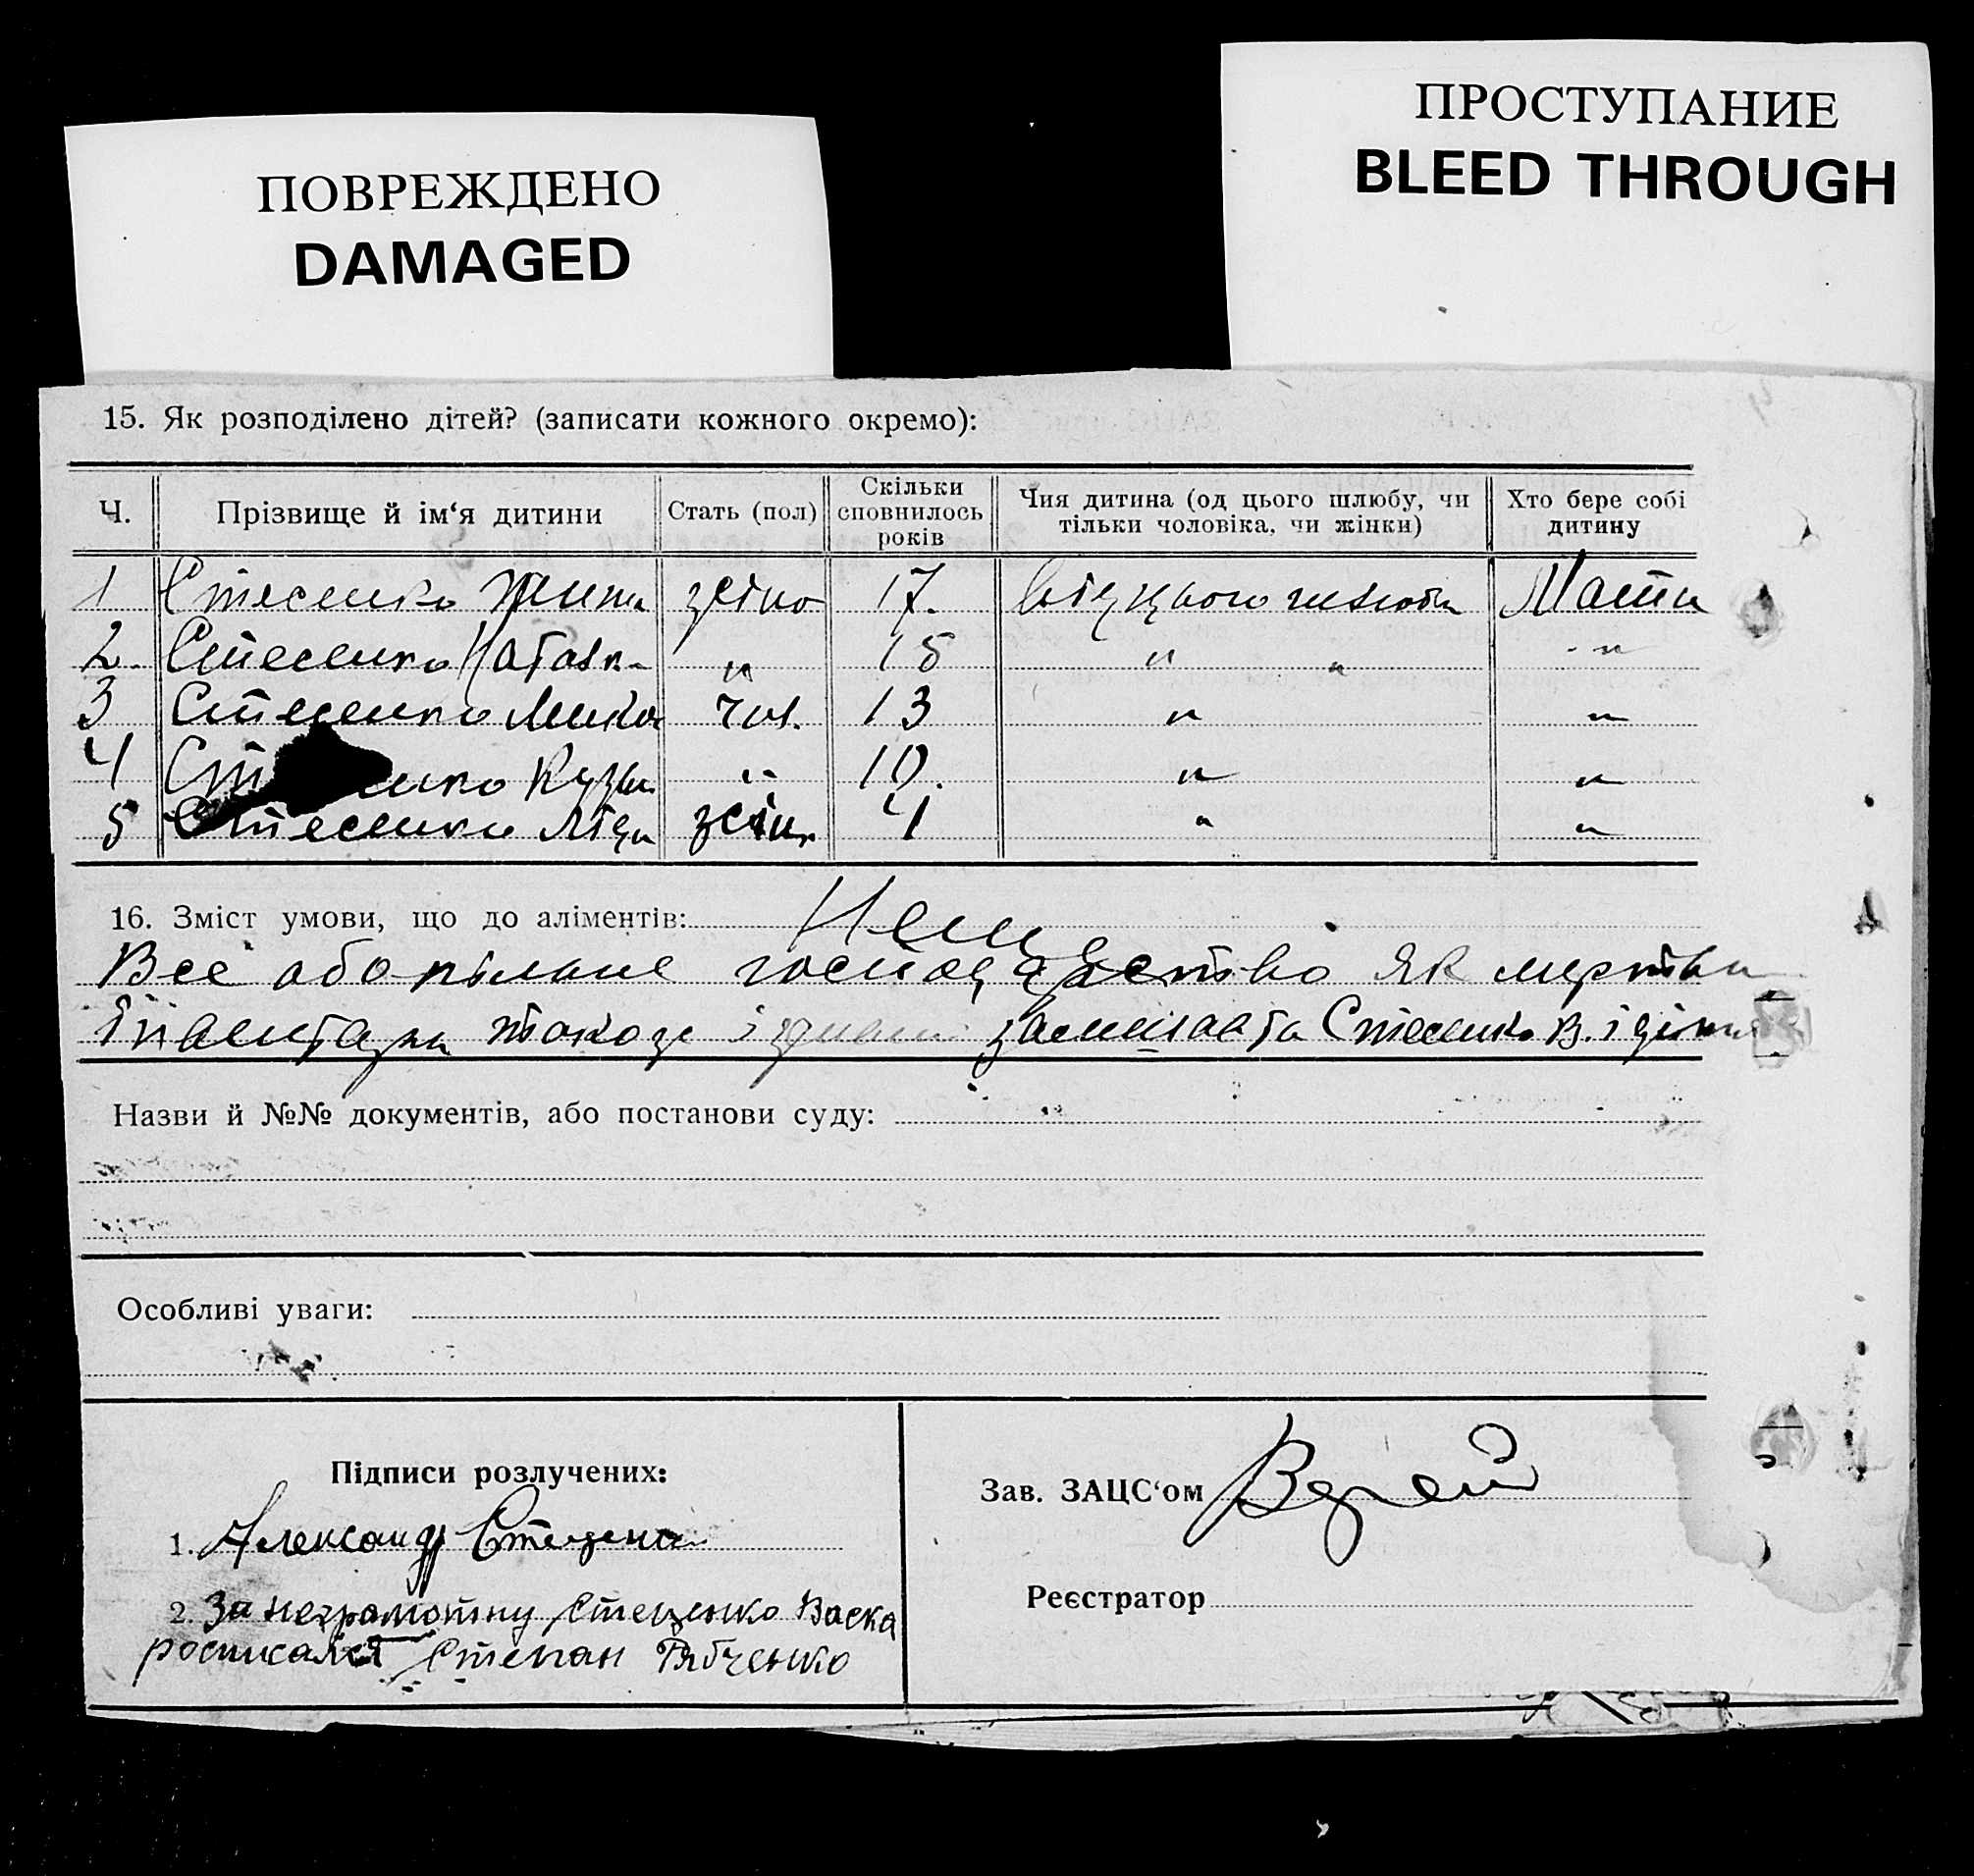 ПРОСТУПАНИЕ
BLEED THROUGH
ПОВРЕЖДЕНО
DAMAGED
15. Як розподілено дітей? (записати кожного окремо):
Ч. Прізвище й ім‘я дитини Стать (пол) Скільки сповнилось років Чия дитина (од цього шлюбу, чи тільки чоловіка, чи жінки) Хто бере собі дитину
1 Стесенко жіно 17. від цього шлюби Мати
2. Стесенко Натал „ 15 „ „ „
3 Стесенко Мико чол. 13 „ „
4 Ст енко Кузьм „ 10. „ „
5 Стесенко Ліда жін. 4 „ „
16. Зміст умови, що до аліментів:
Все або господарство як мертви
також залишаета Стесенко В. і діти
Назви й №№ документів, або постанови суду:
Особливі уваги:
Підписи розлучених:
Зав. ЗАЦС‘ом
1. Александр Стеценко
2. За неграмотну Стеценко Васка
росписался Степан Рябченко
Реєстратор